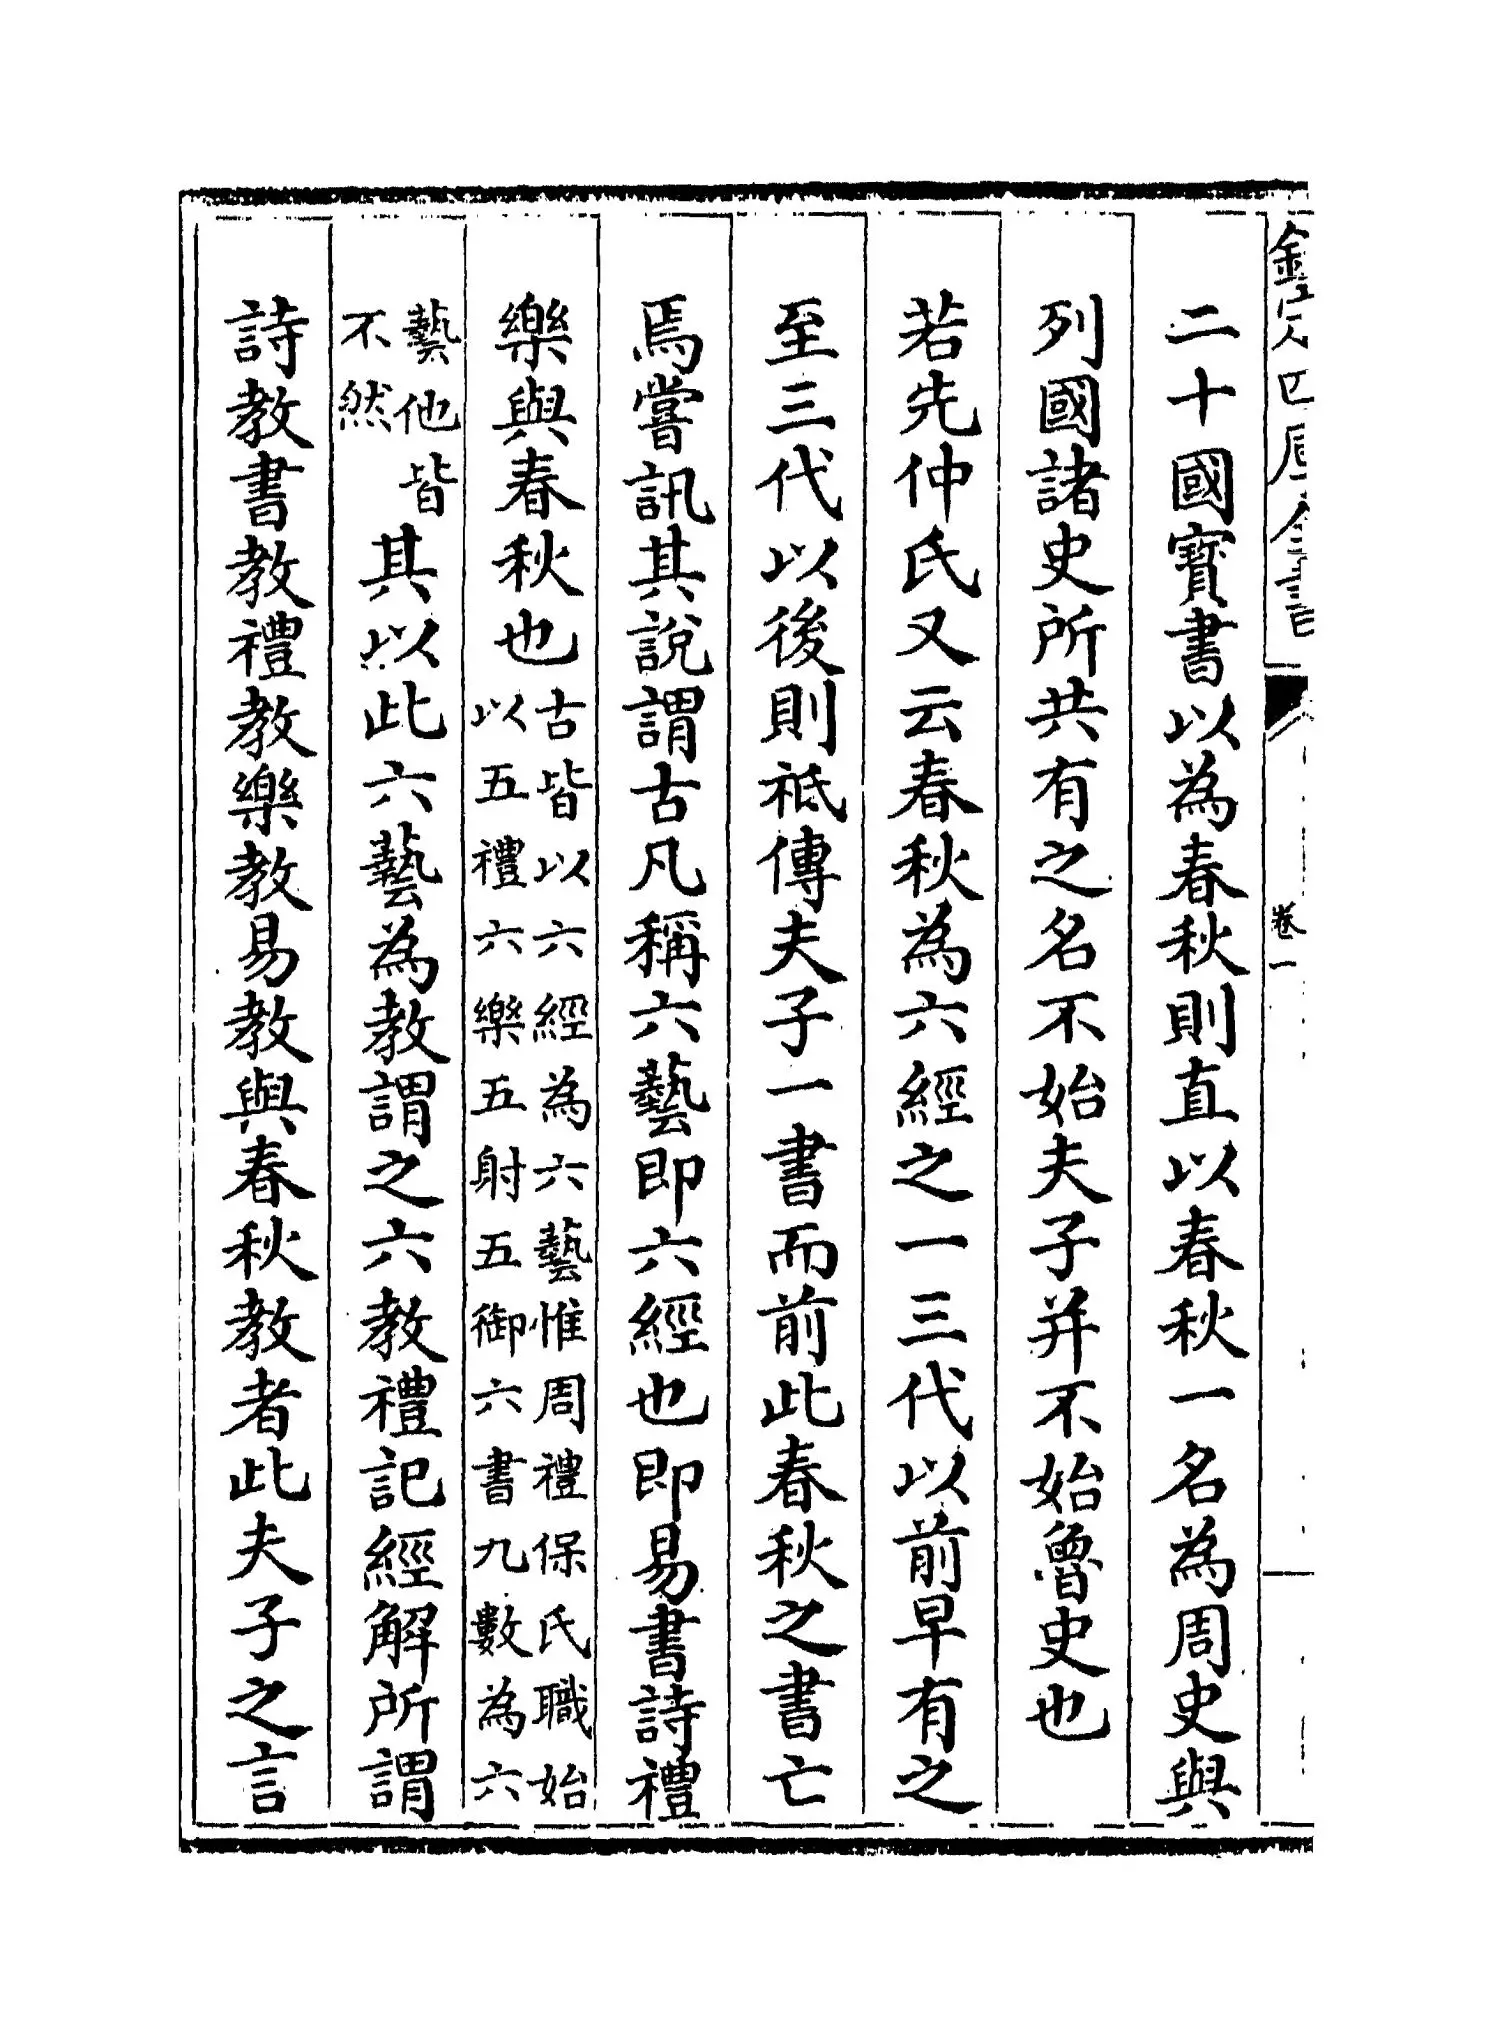 欽定四庫全書
卷一
二十國寳書以為春秋則直以春秋一名為周史與
列國諸史所共有之名不始夫子并不始魯史也
若先仲氏又云春秋為六經之一三代以前早有之
至三代以後則祗傳夫子一書而前此春秋之書亡
焉嘗訊其說謂古凡稱六藝即六經也即易書詩禮
樂與春秋也
古皆以六經為六藝惟周禮保氏職始
以五禮六樂五射五御六書九數為六
藝他皆
不然
其以此六藝為教謂之六教禮記經解所謂
詩教書教禮教樂教易教與春秋教者此夫子之言